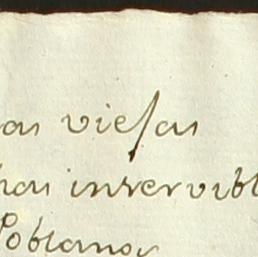 as viejas
has inservibl
Poblanos